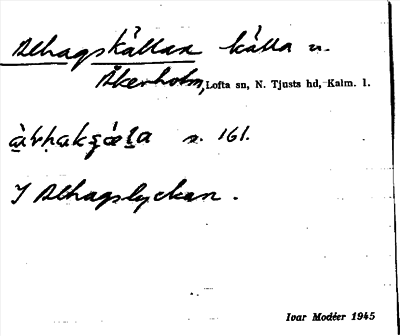 Alhagskällan källa u.
Åkerholm, Lofta sn, N. Tjusts hd, Kalm. l.
s. 161.
I Alhagslyckan.
Ivar Modéer 1945